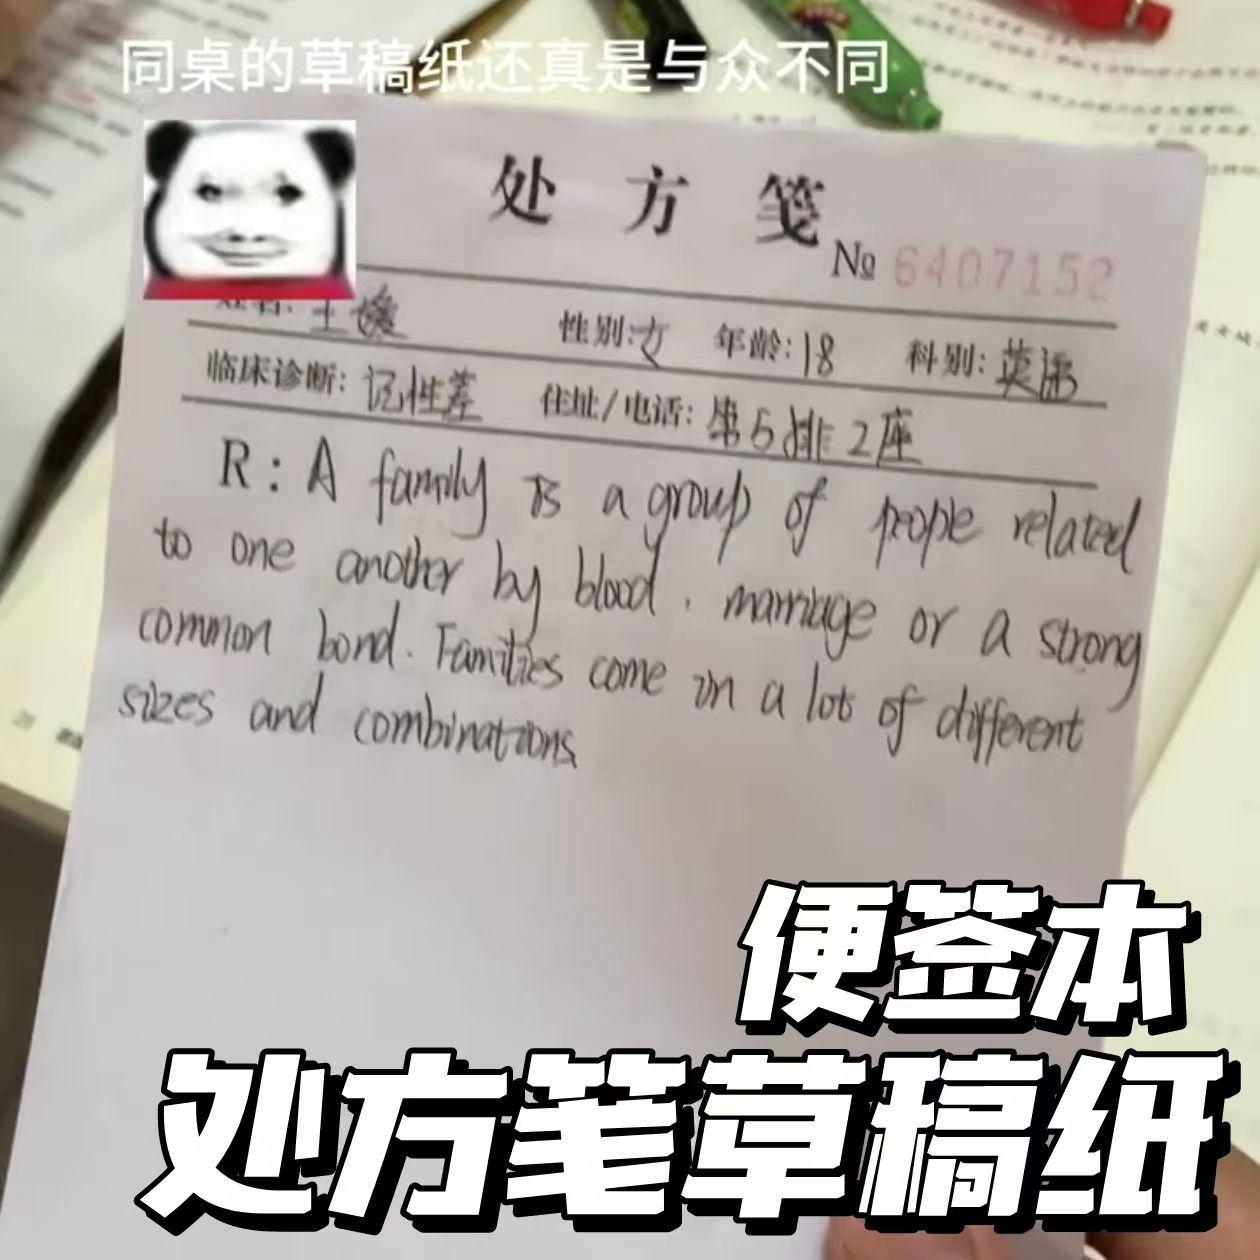 同桌的草稿纸还真是与众不同
处方笺
№ 6407152
姓名: 王
性别: 女 年龄: 18 科别: 英语
临床诊断: 记性差 住址/电话: 第5排2座
R: A family is a group of people related
to one another by blood, marriage or a strong
common bond. Families come in a lot of different
sizes and combinations.
便签本
处方笔草稿纸